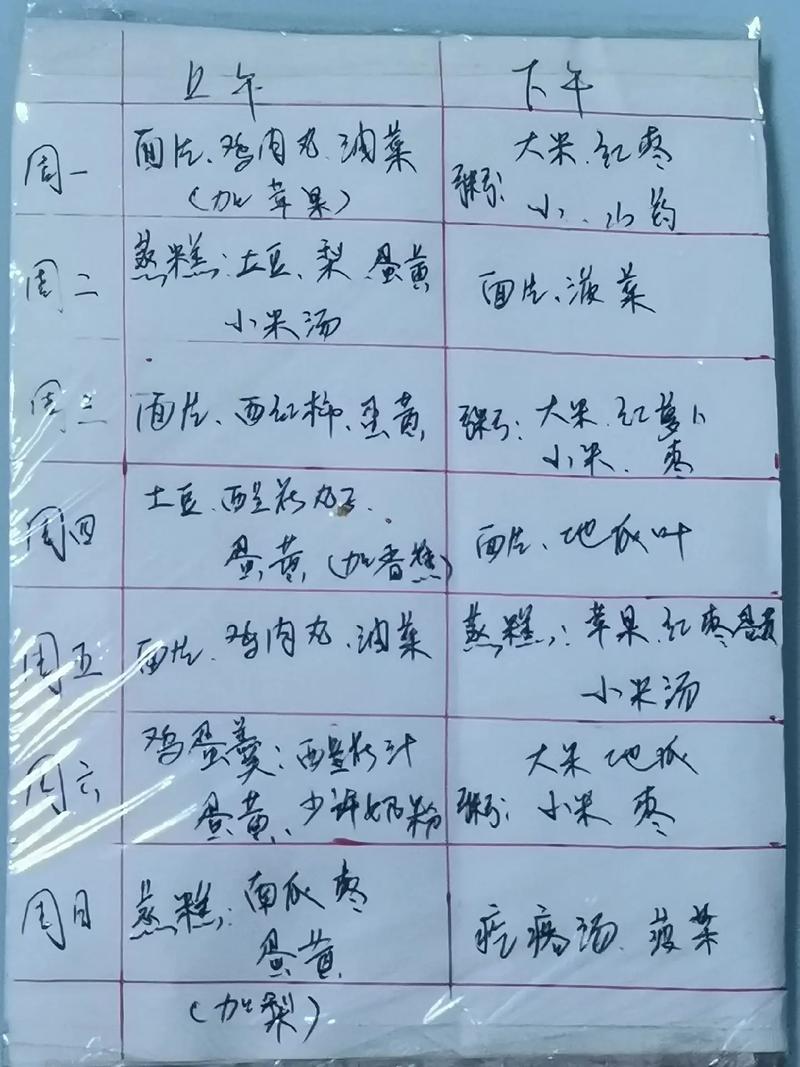 上午 下午
周一 面片、鸡肉丸、油菜 大米.红枣
(加苹果) 粥: 小、山药
周二 蒸糕:土豆、梨.蛋黄 面片、菠菜
小米汤
周三 面片、西红柿、蛋黄 粥:大米.红萝卜
小米.枣
周四 土豆.西兰花丸子. 面片、地瓜叶
蛋黄(加香蕉)
周五 面片、鸡肉丸、油菜 蒸糕:苹果.红枣蛋黄
小米汤
周六 鸡蛋羹:西兰花汁 大米 地瓜
蛋黄、少许奶粉 粥:小米 枣
周日 蒸糕:南瓜 枣 疙瘩汤.菠菜
蛋黄
(加梨)